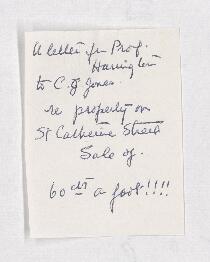 A letter fr Prof.
Harrington
to C. J. Jones.
re property on
St Catherine Street
Sale of.
60 cts a foot!!!!